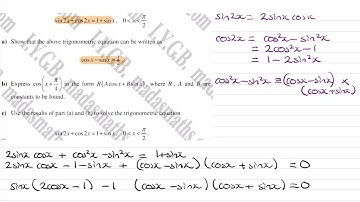 sin2x + cos2x = 1 + sinx, 0 < x < π/2
a) Show that the above trigonometric equation can be written as
cosx − sinx = 
b) Express cos(x + π/4) in the form R[Acosx + Bsinx], where R, A and B are
constants to be found.
c) Use the results of part (a) and (b) to solve the trigonometric equation
sin2x + cos2x = 1 + sinx, 0 < x < π/2
sin2x = 2sinx cosx
cos2x = cos²x − sin²x
= 2cos²x − 1
= 1 − 2sin²x
cos²x − sin²x ≡ (cosx − sinx) ×
(cosx + sinx)
2sinx cosx + cos²x − sin²x = 1 + sinx
2sinx cosx − 1 − sinx + (cosx − sinx)(cosx + sinx) = 0
sinx (2cosx − 1) − 1 (cosx − sinx)(cosx + sinx) = 0